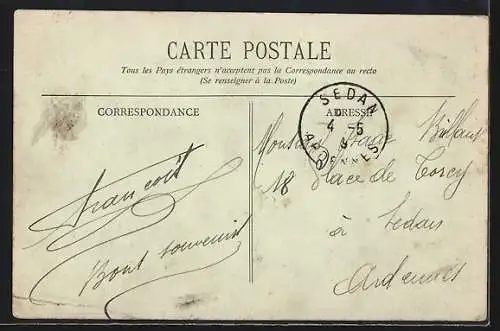 CARTE POSTALE
Tous les Pays étrangers n'acceptent pas la Correspondance au recto
(Se renseigner à la Poste)
CORRESPONDANCE
ADRESSE
SEDAN
4 - 5
ARDENNES
Monsieur
18 Place de Torcy
à Sedan
Ardennes
Bons souvenirs